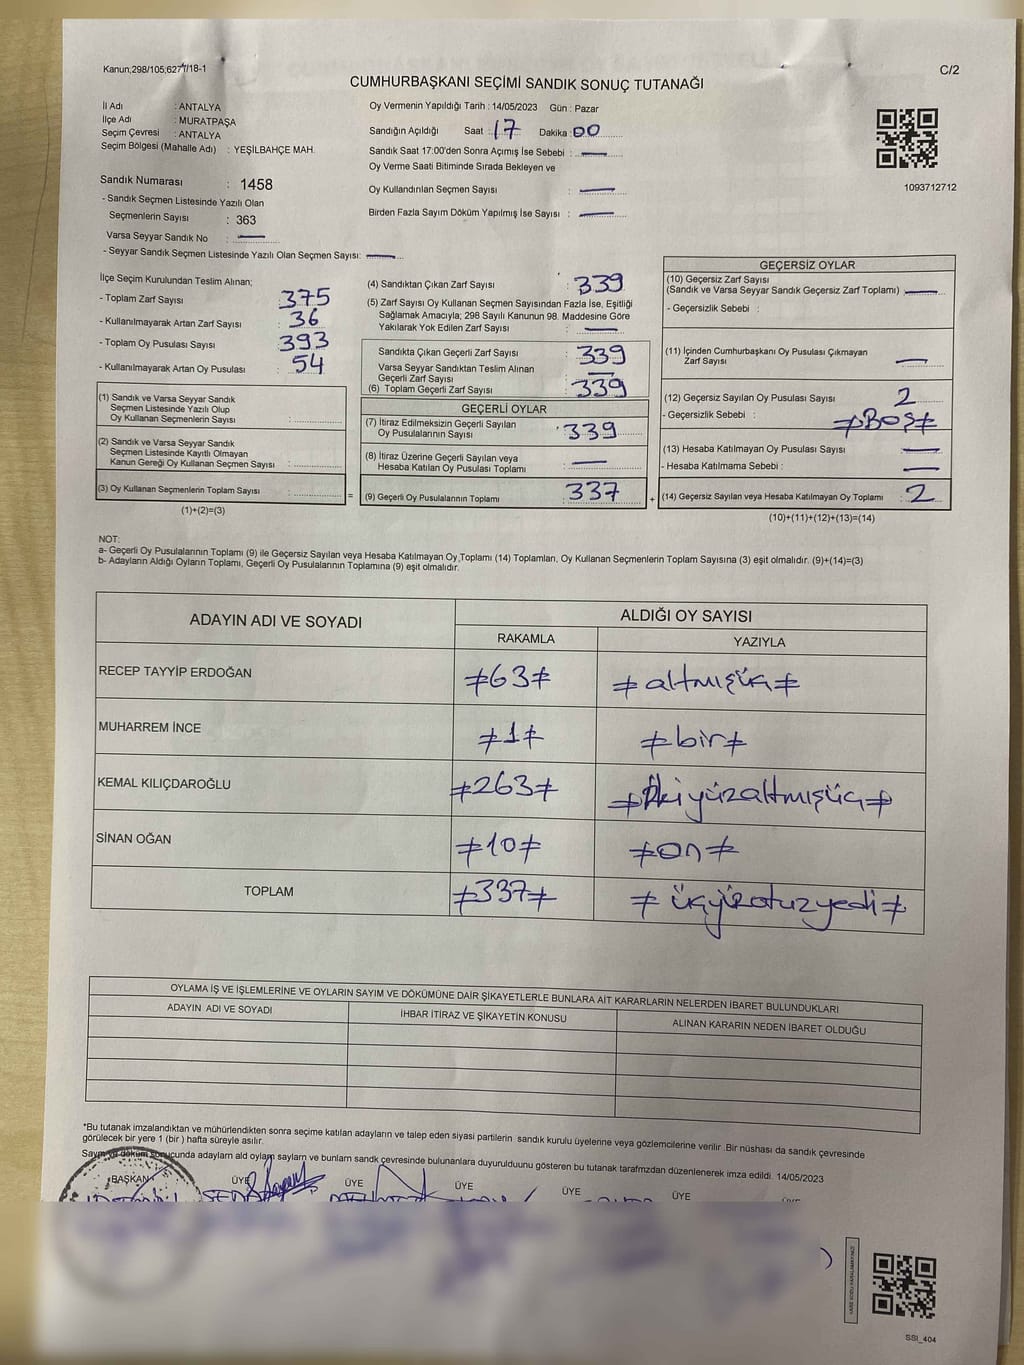 Kanun;298/105;627/18-1
C/2
CUMHURBAŞKANI SEÇİMİ SANDIK SONUÇ TUTANAĞI
İl Adı : ANTALYA
İlçe Adı : MURATPAŞA
Seçim Çevresi : ANTALYA
Seçim Bölgesi (Mahalle Adı) : YEŞİLBAHÇE MAH.
Sandık Numarası : 1458
- Sandık Seçmen Listesinde Yazılı Olan
Seçmenlerin Sayısı : 363
Varsa Seyyar Sandık No : —
- Seyyar Sandık Seçmen Listesinde Yazılı Olan Seçmen Sayısı: —
Oy Vermenin Yapıldığı Tarih : 14/05/2023 Gün : Pazar
Sandığın Açıldığı Saat : 17 Dakika : 00
Sandık Saat 17:00'den Sonra Açımış İse Sebebi : —
Oy Verme Saati Bitiminde Sırada Bekleyen ve
Oy Kullandırılan Seçmen Sayısı : —
Birden Fazla Sayım Döküm Yapılmış İse Sayısı : —
1093712712
İlçe Seçim Kurulundan Teslim Alınan;
- Toplam Zarf Sayısı : 375
- Kullanılmayarak Artan Zarf Sayısı : 36
- Toplam Oy Pusulası Sayısı : 393
- Kullanılmayarak Artan Oy Pusulası : 54
(1) Sandık ve Varsa Seyyar Sandık
Seçmen Listesinde Yazılı Olup
Oy Kullanan Seçmenlerin Sayısı :
(2) Sandık ve Varsa Seyyar Sandık
Seçmen Listesinde Kayıtlı Olmayan
Kanun Gereği Oy Kullanan Seçmen Sayısı :
(3) Oy Kullanan Seçmenlerin Toplam Sayısı :
(1)+(2)=(3)
(4) Sandıktan Çıkan Zarf Sayısı : 339
(5) Zarf Sayısı Oy Kullanan Seçmen Sayısından Fazla İse, Eşitliği
Sağlamak Amacıyla; 298 Sayılı Kanunun 98. Maddesine Göre
Yakılarak Yok Edilen Zarf Sayısı : —
Sandıkta Çıkan Geçerli Zarf Sayısı : 339
Varsa Seyyar Sandıktan Teslim Alınan
Geçerli Zarf Sayısı : —
(6) Toplam Geçerli Zarf Sayısı : 339
GEÇERLİ OYLAR
(7) İtiraz Edilmeksizin Geçerli Sayılan
Oy Pusulalarının Sayısı : 339
(8) İtiraz Üzerine Geçerli Sayılan veya
Hesaba Katılan Oy Pusulası Toplamı : —
= (9) Geçerli Oy Pusulalarının Toplamı : 337 +
GEÇERSİZ OYLAR
(10) Geçersiz Zarf Sayısı
(Sandık ve Varsa Seyyar Sandık Geçersiz Zarf Toplamı) : —
- Geçersizlik Sebebi :
(11) İçinden Cumhurbaşkanı Oy Pusulası Çıkmayan
Zarf Sayısı : —
(12) Geçersiz Sayılan Oy Pusulası Sayısı : 2
- Geçersizlik Sebebi : ≠BOŞ≠
(13) Hesaba Katılmayan Oy Pusulası Sayısı : —
- Hesaba Katılmama Sebebi : —
(14) Geçersiz Sayılan veya Hesaba Katılmayan Oy Toplamı : 2
(10)+(11)+(12)+(13)=(14)
NOT:
a- Geçerli Oy Pusulalarının Toplamı (9) ile Geçersiz Sayılan veya Hesaba Katılmayan Oy Toplamı (14) Toplamları, Oy Kullanan Seçmenlerin Toplam Sayısına (3) eşit olmalıdır. (9)+(14)=(3)
b- Adayların Aldığı Oyların Toplamı, Geçerli Oy Pusulalarının Toplamına (9) eşit olmalıdır.
ADAYIN ADI VE SOYADI ALDIĞI OY SAYISI
RAKAMLA YAZIYLA
RECEP TAYYİP ERDOĞAN ≠63≠ ≠altmışüç≠
MUHARREM İNCE ≠1≠ ≠bir≠
KEMAL KILIÇDAROĞLU ≠263≠ ≠ikiyüzaltmışüç≠
SİNAN OĞAN ≠10≠ ≠on≠
TOPLAM ≠337≠ ≠üçyüzotuzyedi≠
OYLAMA İŞ VE İŞLEMLERİNE VE OYLARIN SAYIM VE DÖKÜMÜNE DAİR ŞİKAYETLERLE BUNLARA AİT KARARLARIN NELERDEN İBARET BULUNDUKLARI
ADAYIN ADI VE SOYADI İHBAR İTİRAZ VE ŞİKAYETİN KONUSU ALINAN KARARIN NEDEN İBARET OLDUĞU
*Bu tutanak imzalandıktan ve mühürlendikten sonra seçime katılan adayların ve talep eden siyasi partilerin sandık kurulu üyelerine veya gözlemcilerine verilir .Bir nüshası da sandık çevresinde
görülecek bir yere 1 (bir ) hafta süreyle asılır.
Sayım ve döküm sonucunda adaylam ald oylam sayların ve bunlam sandk çevresinde bulunanlara duyurulduunu gösteren bu tutanak tarafmzdan düzenlenerek imza edildi. 14/05/2023
BAŞKAN ÜYE ÜYE ÜYE ÜYE ÜYE
SSI_404